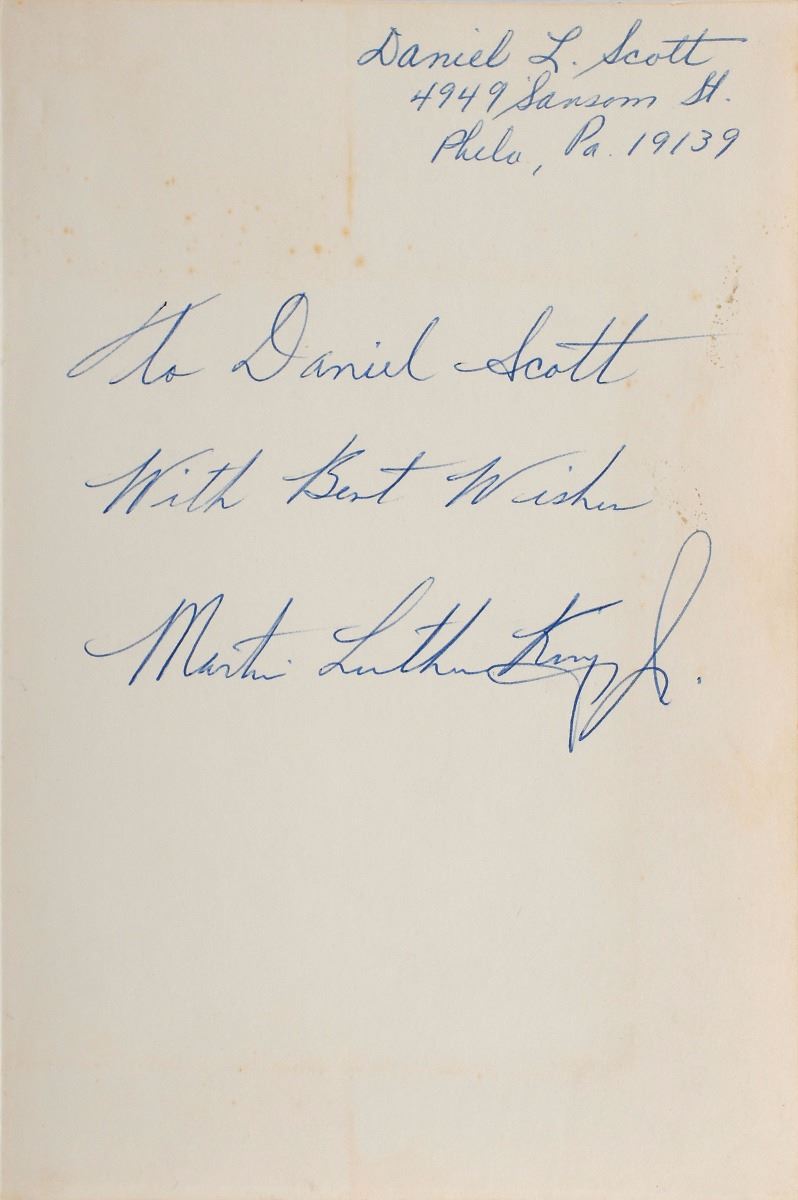 Daniel L. Scott
4949 Sansom St.
Phila, Pa. 19139
To Daniel Scott
With Best Wishes
Martin Luther King Jr.